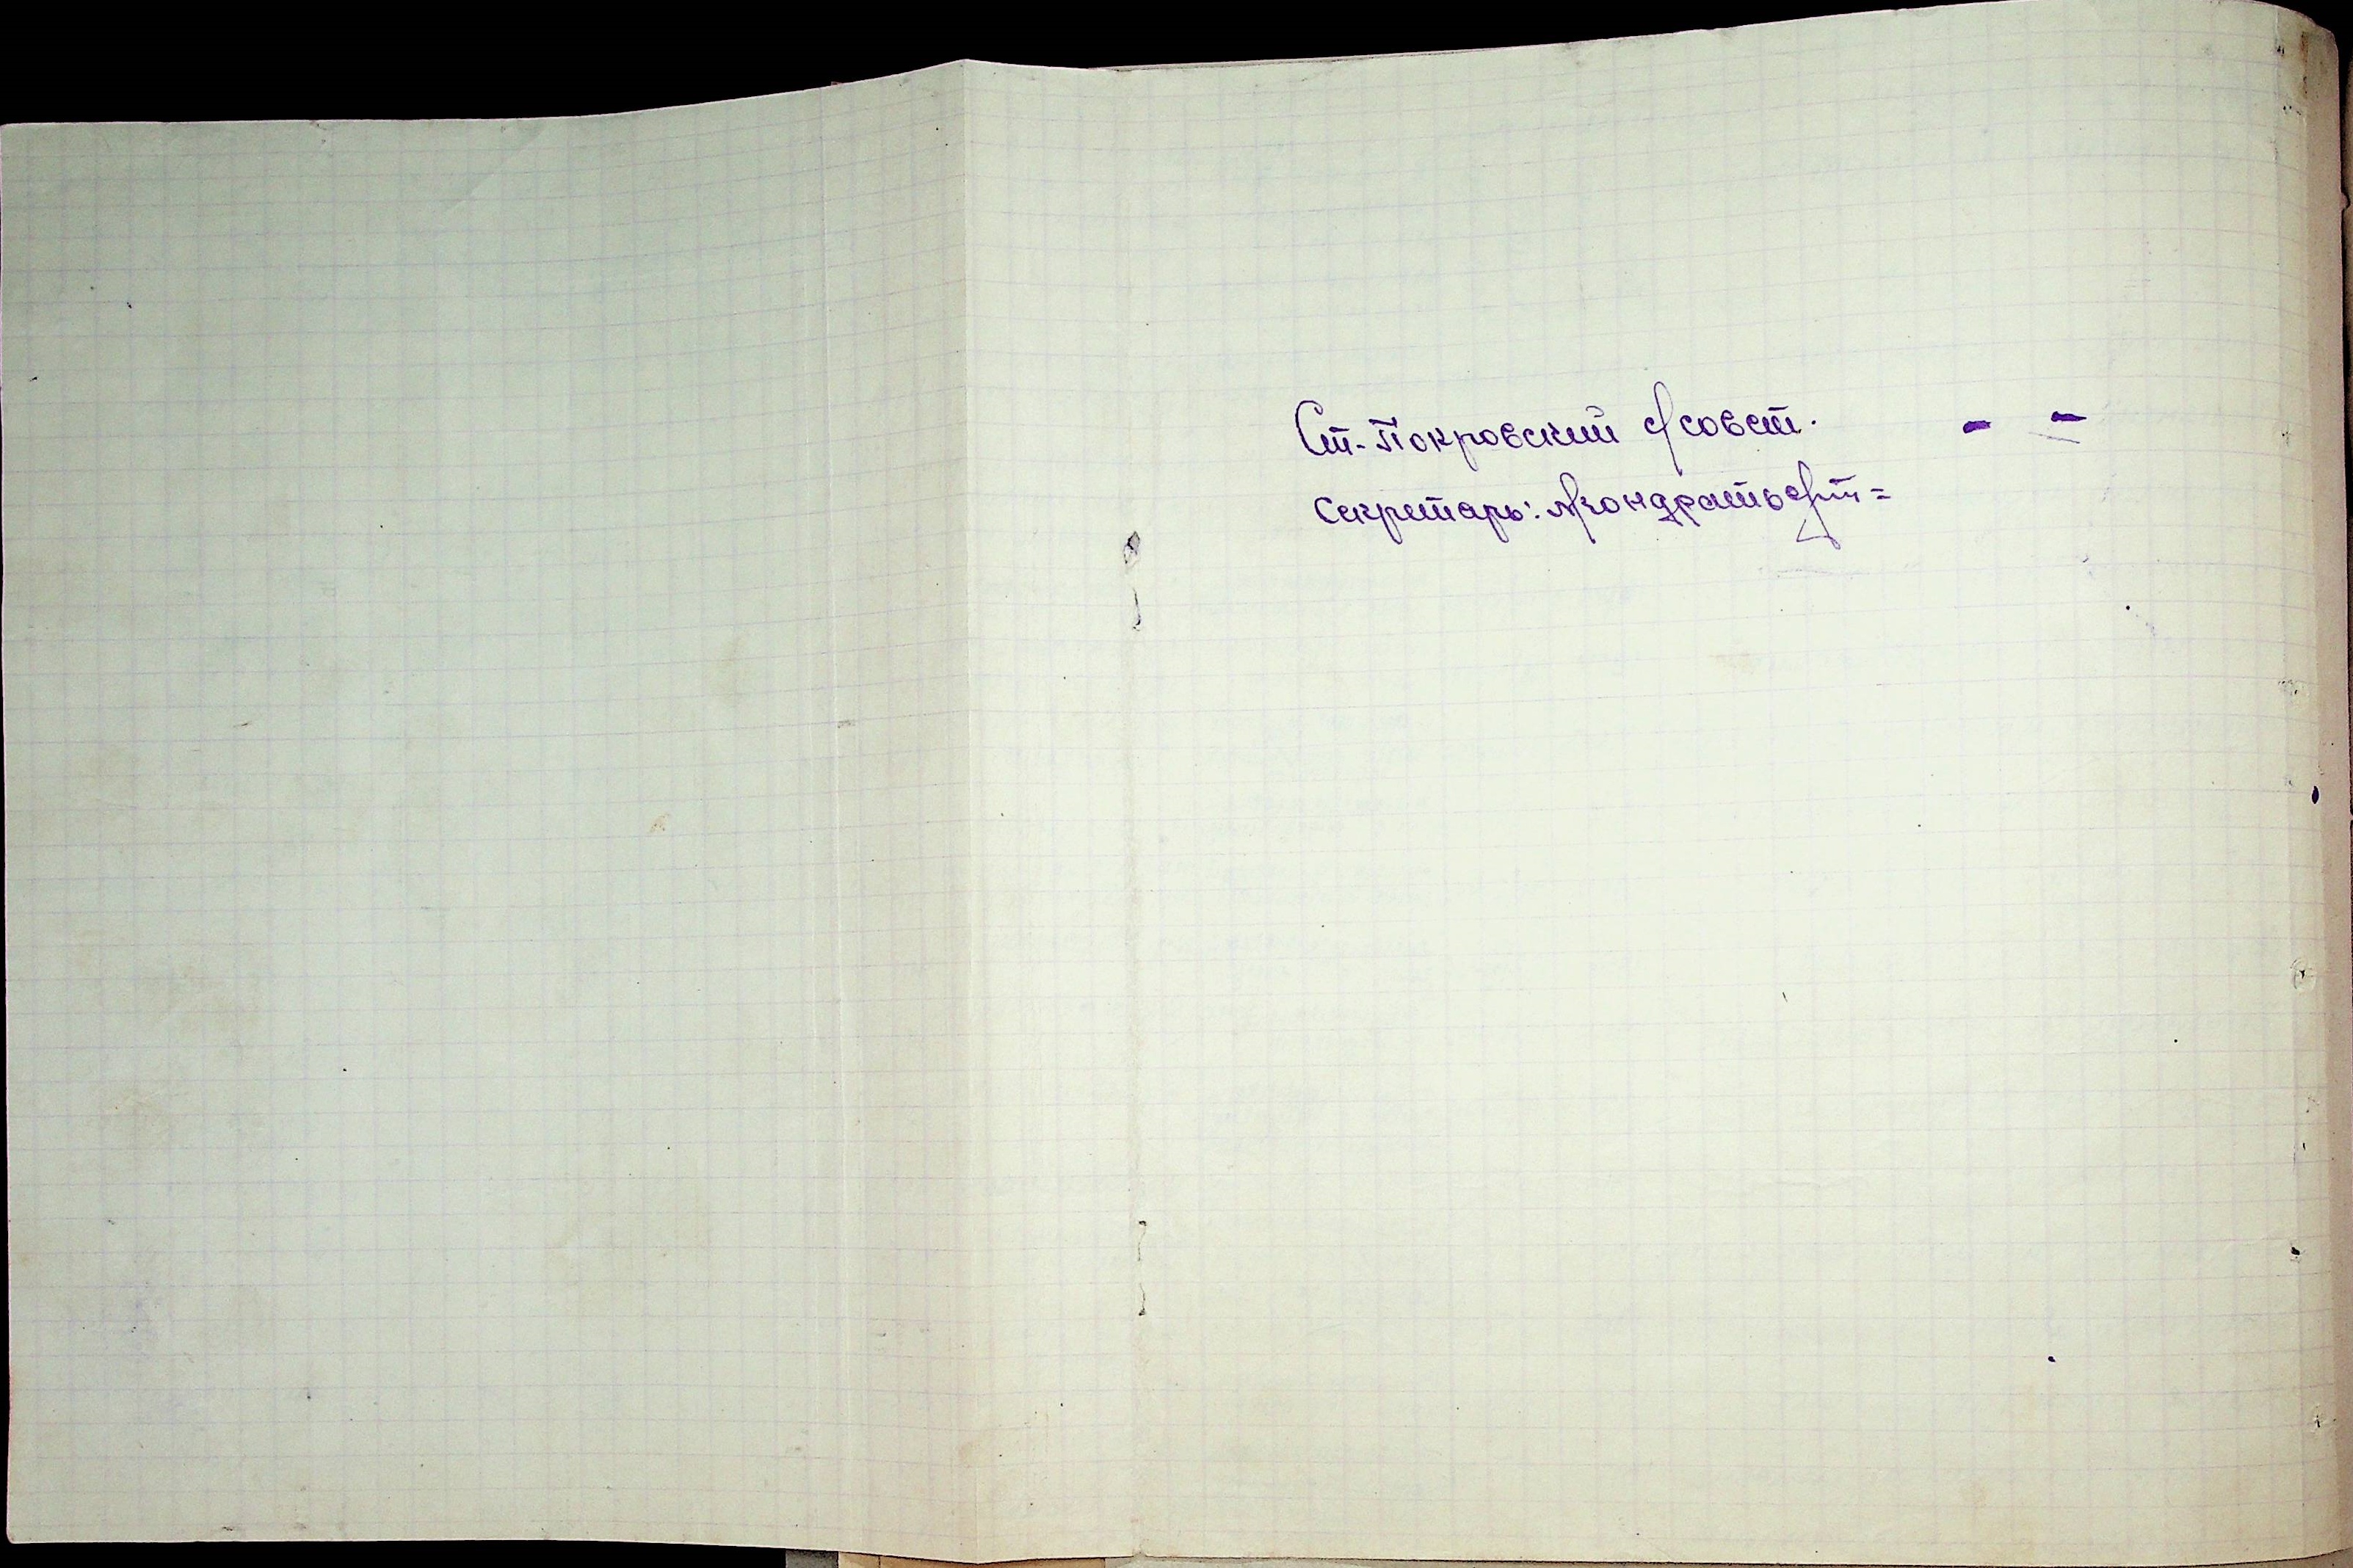 Ст-Покровский с/совет. - -
Секретарь: Кондратьев